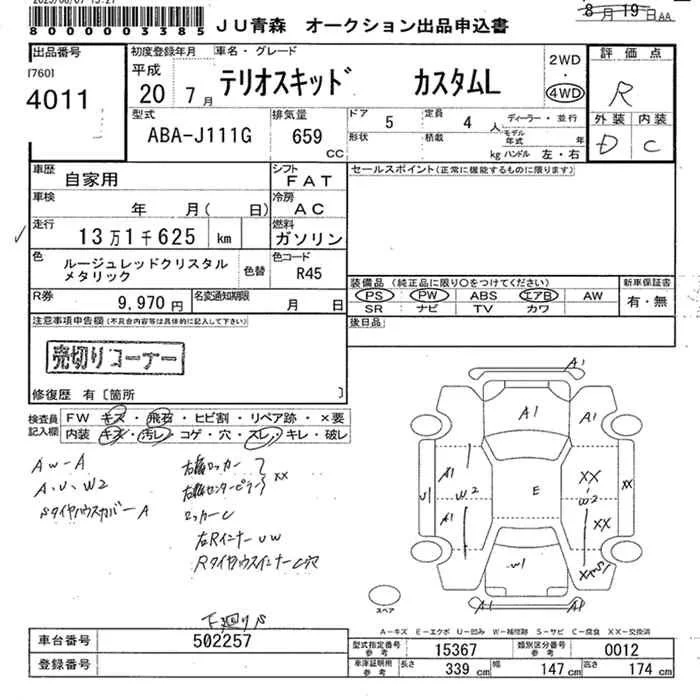 8000000003385
JU青森 オークション出品申込書
8月19日AA
出品番号
[760]
4011
初度登録年月
平成
20 7月
車名・グレード
テリオスキッド カスタムL
2WD
・
4WD
評価点
R
外装 内装
D C
型式
ABA-J111G
排気量
659
CC
ドア
5
定員
4 人
形状
積載
kg
ディーラー・並行
モデル年式 年
ハンドル 左・右
車歴
自家用
シフト
FAT
セールスポイント(正常に機能するものに限ります)
車検
年 月( 日)
冷房
AC
走行
13万1千625 km
燃料
ガソリン
色
ルージュレッドクリスタル
メタリック
色替
色コード
R45
装備品(純正品に限り○をつけてください)
新車保証書
PS PW ABS エアB AW
SR ナビ TV カワ
有・無
R券
9,970円
名変通知期限
月 日
後日品
注意事項申告欄(不具合内容等は具体的に記入して下さい)
売切りコーナー
修復歴 有〔箇所 〕
検査員
記入欄
FW キズ・飛石・ヒビ割・リペア跡・×要
内装 キズ・汚レ・コゲ・穴・スレ・キレ・破レ
AW-A
A、U、W2
右リロッカー
右センターピラー
XX
ロッカーU
右RインナーUW
A1
A1
A1
A1
A1
W2
U1
E
XX
W2
XX
XX
W1
A1
スペア
下廻りS
A-キズ E-エクボ U-凹み W-補修跡 S-サビ C-腐食 XX-交換済
車台番号
502257
登録番号
型式指定番号
参考
15367
類別区分番号
参考
0012
車庫証明用
参考
長さ
339 cm
幅
147 cm
高さ
174 cm